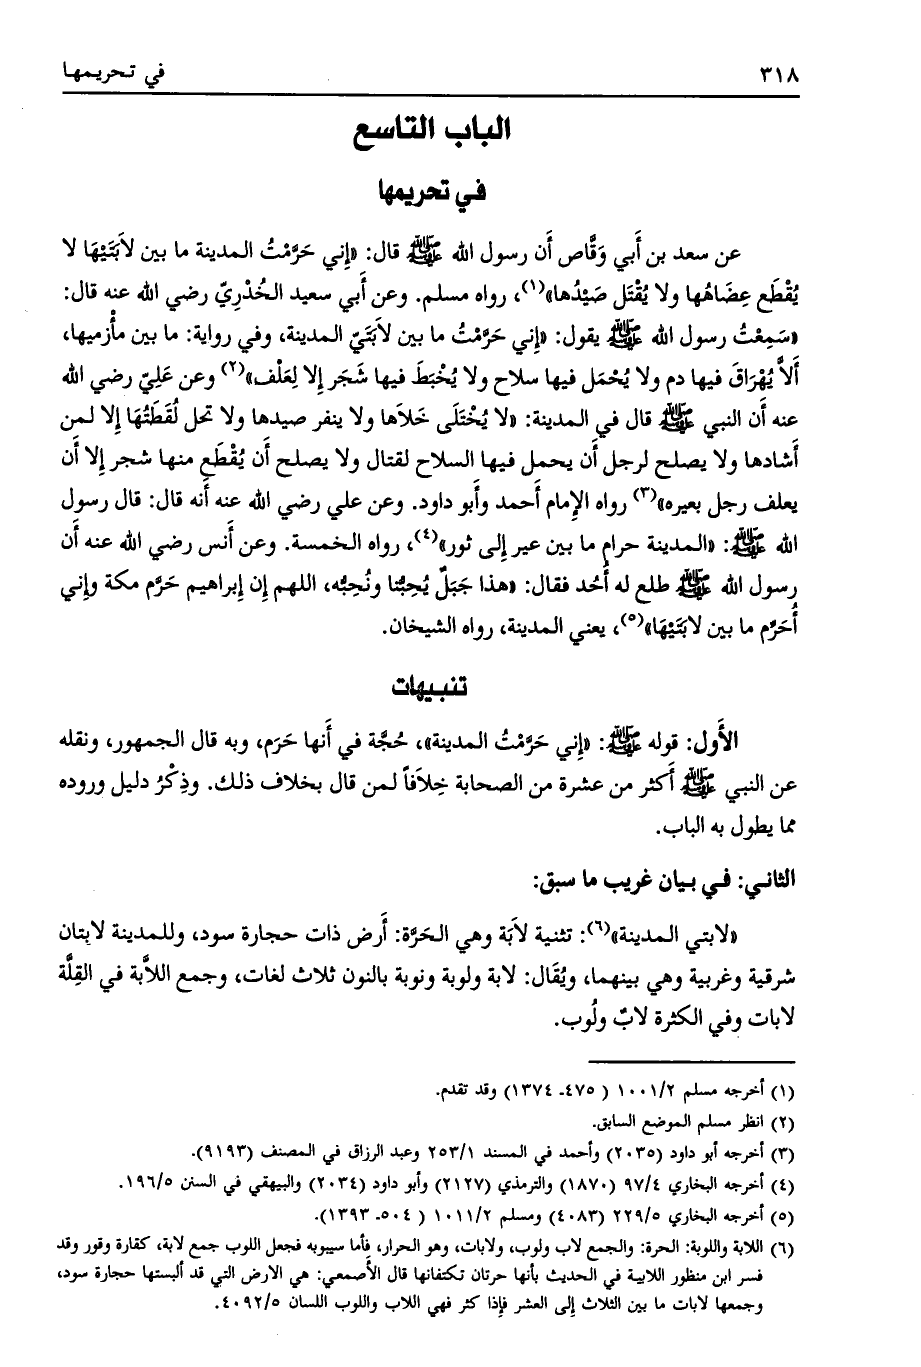 ٣١٨
في تحريمها
الباب التاسع
في تحريمها
عن سعد بن أَبي وَقَّاص أَن رسول الله ﷺ قال: «إِني حَرَّمْتُ المدينة ما بين لاَبَتَيْهَا لا
يُقْطَع عِضَاهُها ولا يُقْتَل صَيْدُها»(١)، رواه مسلم. وعن أَبي سعيد الخُدْرِيّ رضي الله عنه قال:
«سَمِعْتُ رسول الله ﷺ يقول: «إِني حَرَّمْتُ ما بين لاَبَتَيّ المدينة، وفي رواية: ما بين مأْزميها،
أَلاَّ يُهْرَاقَ فيها دم ولا يُحْمَل فيها سلاح ولا يُخْبَطَ فيها شَجَر إِلا لِعَلْف»(٢) وعن عَلِيّ رضي الله
عنه أَن النبي ﷺ قال في المدينة: «لا يُخْتَلَى خَلاَها ولا ينفر صيدها ولا تحل لُقَطَتُهَا إِلا لمن
أَشادها ولا يصلح لرجل أَن يحمل فيها السلاح لقتال ولا يصلح أَن يُقْطَع منها شجر إِلا أَن
يعلف رجل بعيره»(٣) رواه الإِمام أَحمد وأَبو داود. وعن علي رضي الله عنه أَنه قال: قال رسول
الله ﷺ: «المدينة حرام ما بين عير إِلى ثور»(٤)، رواه الخمسة. وعن أَنس رضي الله عنه أَن
رسول الله ﷺ طلع له أُحُد فقال: «هذا جَبَلٌ يُحِبُّنا ونُحِبُّه، اللهم إِن إِبراهيم حَرَّم مكة وإِني
أُحَرَّم ما بين لابَتَيْهَا»(٥)، يعني المدينة، رواه الشيخان.
تنبيهات
الأَول: قوله ﷺ: «إِني حَرَّمْتُ المدينة»، حُجَّة في أَنها حَرَم، وبه قال الجمهور، ونقله
عن النبي ﷺ أَكثر من عشرة من الصحابة خِلاَفاً لمن قال بخلاف ذلك. وذِكْرُ دليل وروده
مما يطول به الباب.
الثاني: في بيان غريب ما سبق:
«لابتي المدينة»(٦): تثنية لاَبَة وهي الحَرَّة: أَرض ذات حجارة سود، وللمدينة لابتان
شرقية وغربية وهي بينهما، ويُقَال: لابة ولوبة ونوبة بالنون ثلاث لغات، وجمع اللاَّبة في القِلَّة
لابات وفي الكثرة لابٌ ولُوب.
(١) أخرجه مسلم ١٠٠١/٢ ( ٤٧٥ـ ١٣٧٤) وقد تقدم.
(٢) انظر مسلم الموضع السابق.
(٣) أخرجه أبو داود (٢٠٣٥) وأحمد في المسند ٢٥٣/١ وعبد الرزاق في المصنف (٩١٩٣).
(٤) أخرجه البخاري ٩٧/٤ (١٨٧٠) والترمذي (٢١٢٧) وأبو داود (٢٠٣٤) والبيهقي في السنن ١٩٦/٥.
(٥) أخرجه البخاري ٢٢٩/٥ (٤٠٨٣) ومسلم ١٠١١/٢ ( ٥٠٤ـ ١٣٩٣).
(٦) اللابة واللوبة: الحرة: والجمع لاب ولوب، ولابات، وهو الحرار، فأما سيبويه فجعل اللوب جمع لابة، كقارة وقور وقد
فسر ابن منظور اللابية في الحديث بأنها حرتان تكتفانها قال الأَصمعي: هي الارض التي قد ألبستها حجارة سود،
وجمعها لابات ما بين الثلاث إِلى العشر فإِذا كثر فهي اللاب واللوب اللسان ٤٠٩٢/٥.